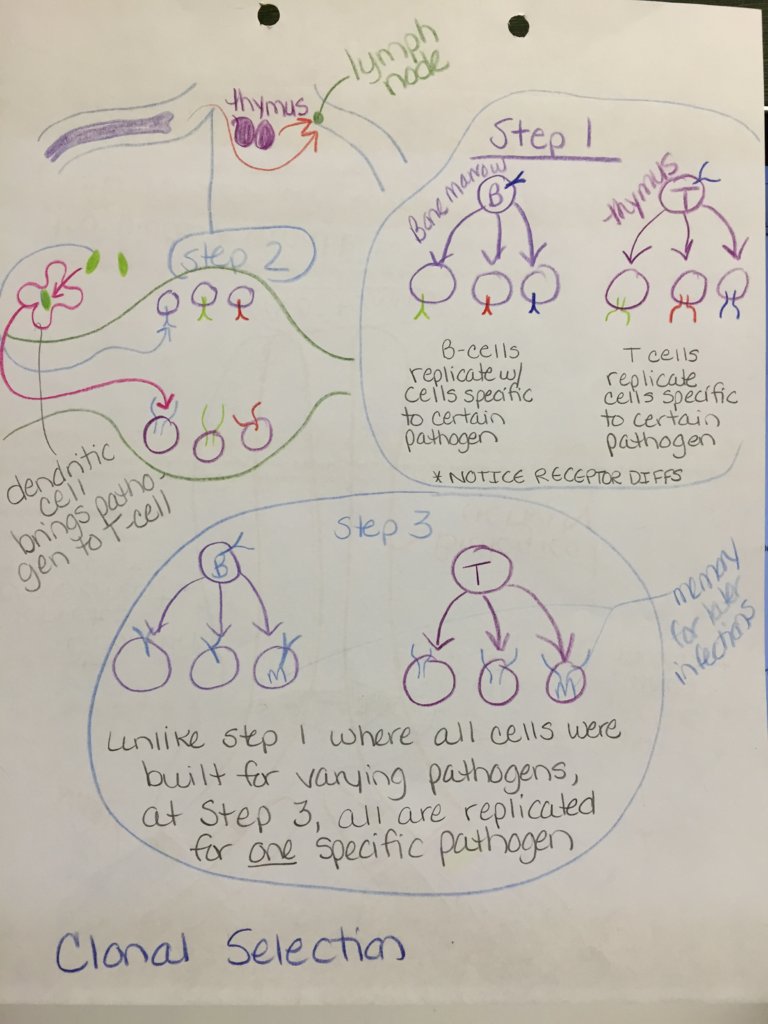 lymph
node
thymus
Step 1
Bone marrow
B
thymus
T
B-cells
replicate w/
cells specific
to certain
pathogen
T cells
replicate
cells specific
to certain
pathogen
* NOTICE RECEPTOR DIFFS
Step 2
dendritic
cell
brings patho-
gen to T-cell
Step 3
B
T
M
M
memory
for later
infections
unlike step 1 where all cells were
built for varying pathogens,
at Step 3, all are replicated
for one specific pathogen
Clonal Selection